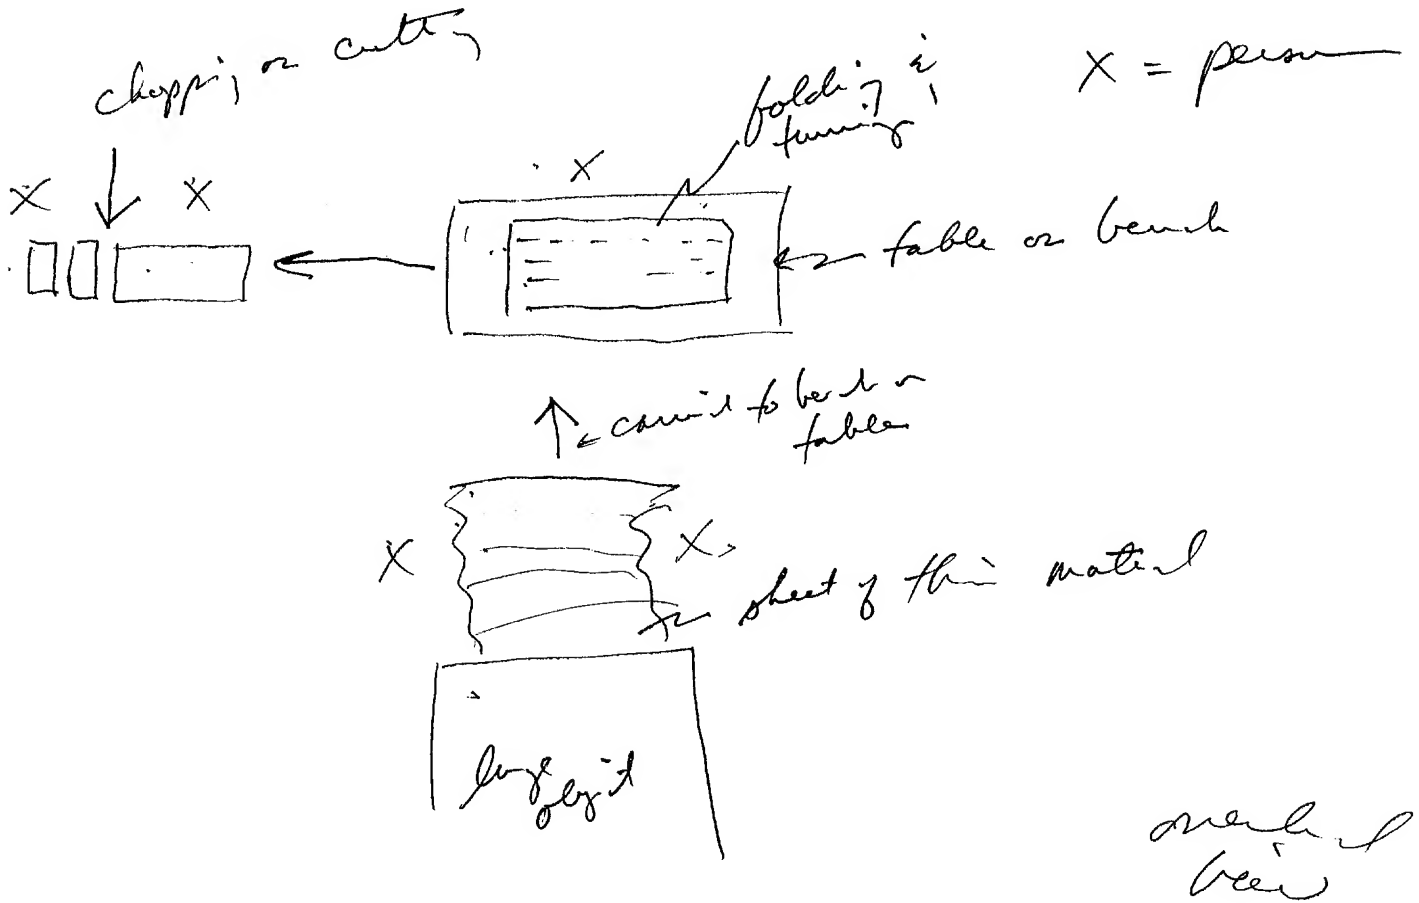 chopping or cutting
X = person
folding &
turning
X
X
X
table or bench
carried to bench or
table
X
X
sheet of thin material
large
object
overhead
view